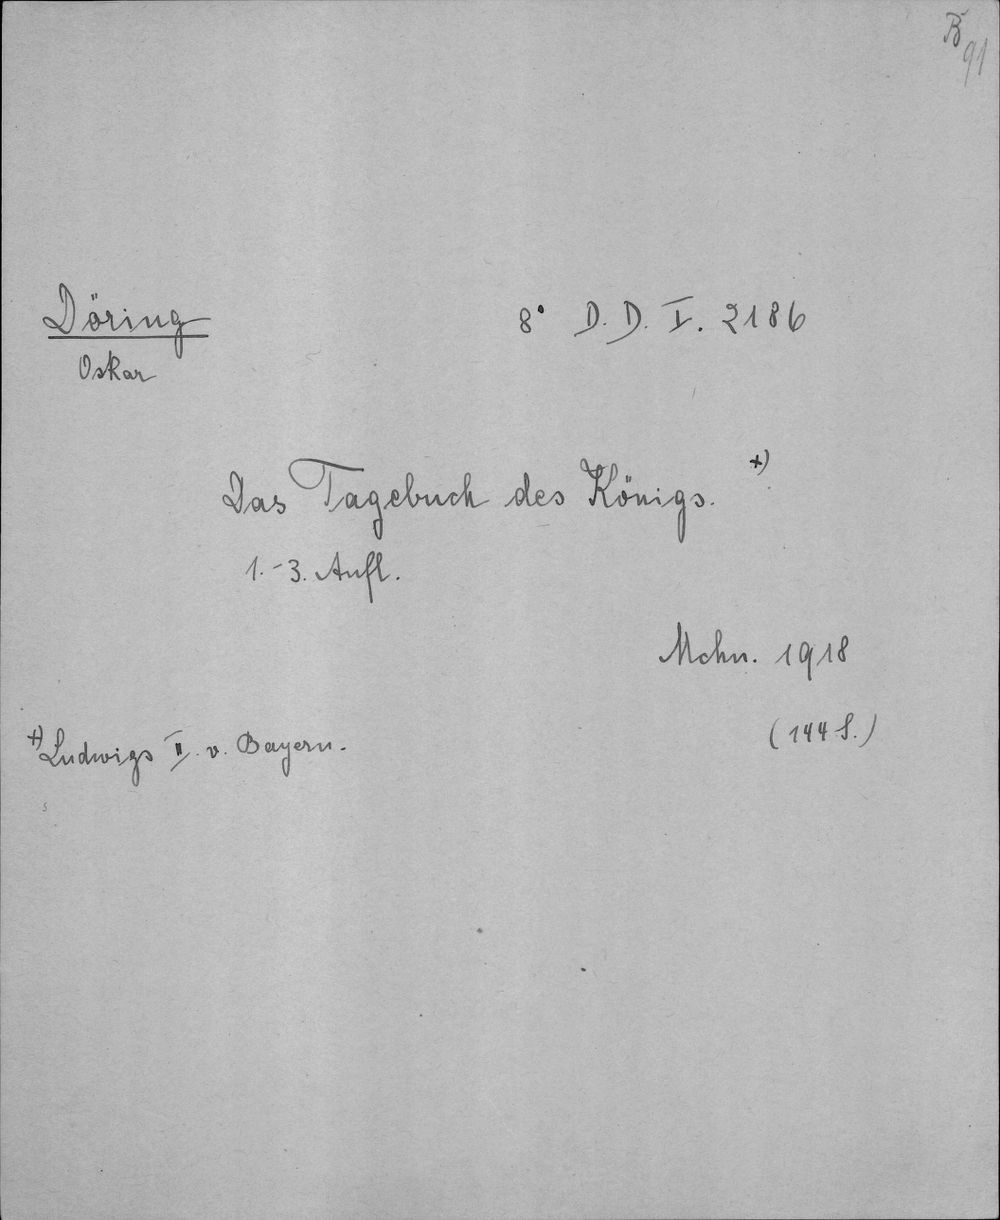 B
91
Döring
8° D. D. I. 2186
Oskar
Das Tagebuch des Königs. +)
1.-3. Aufl.
Mchn. 1918
(144 S.)
+) Ludwigs II. v. Bayern.